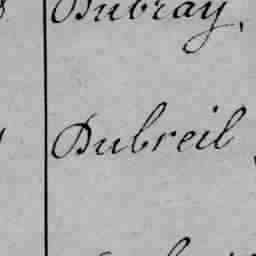 Dubray,
Dubreil